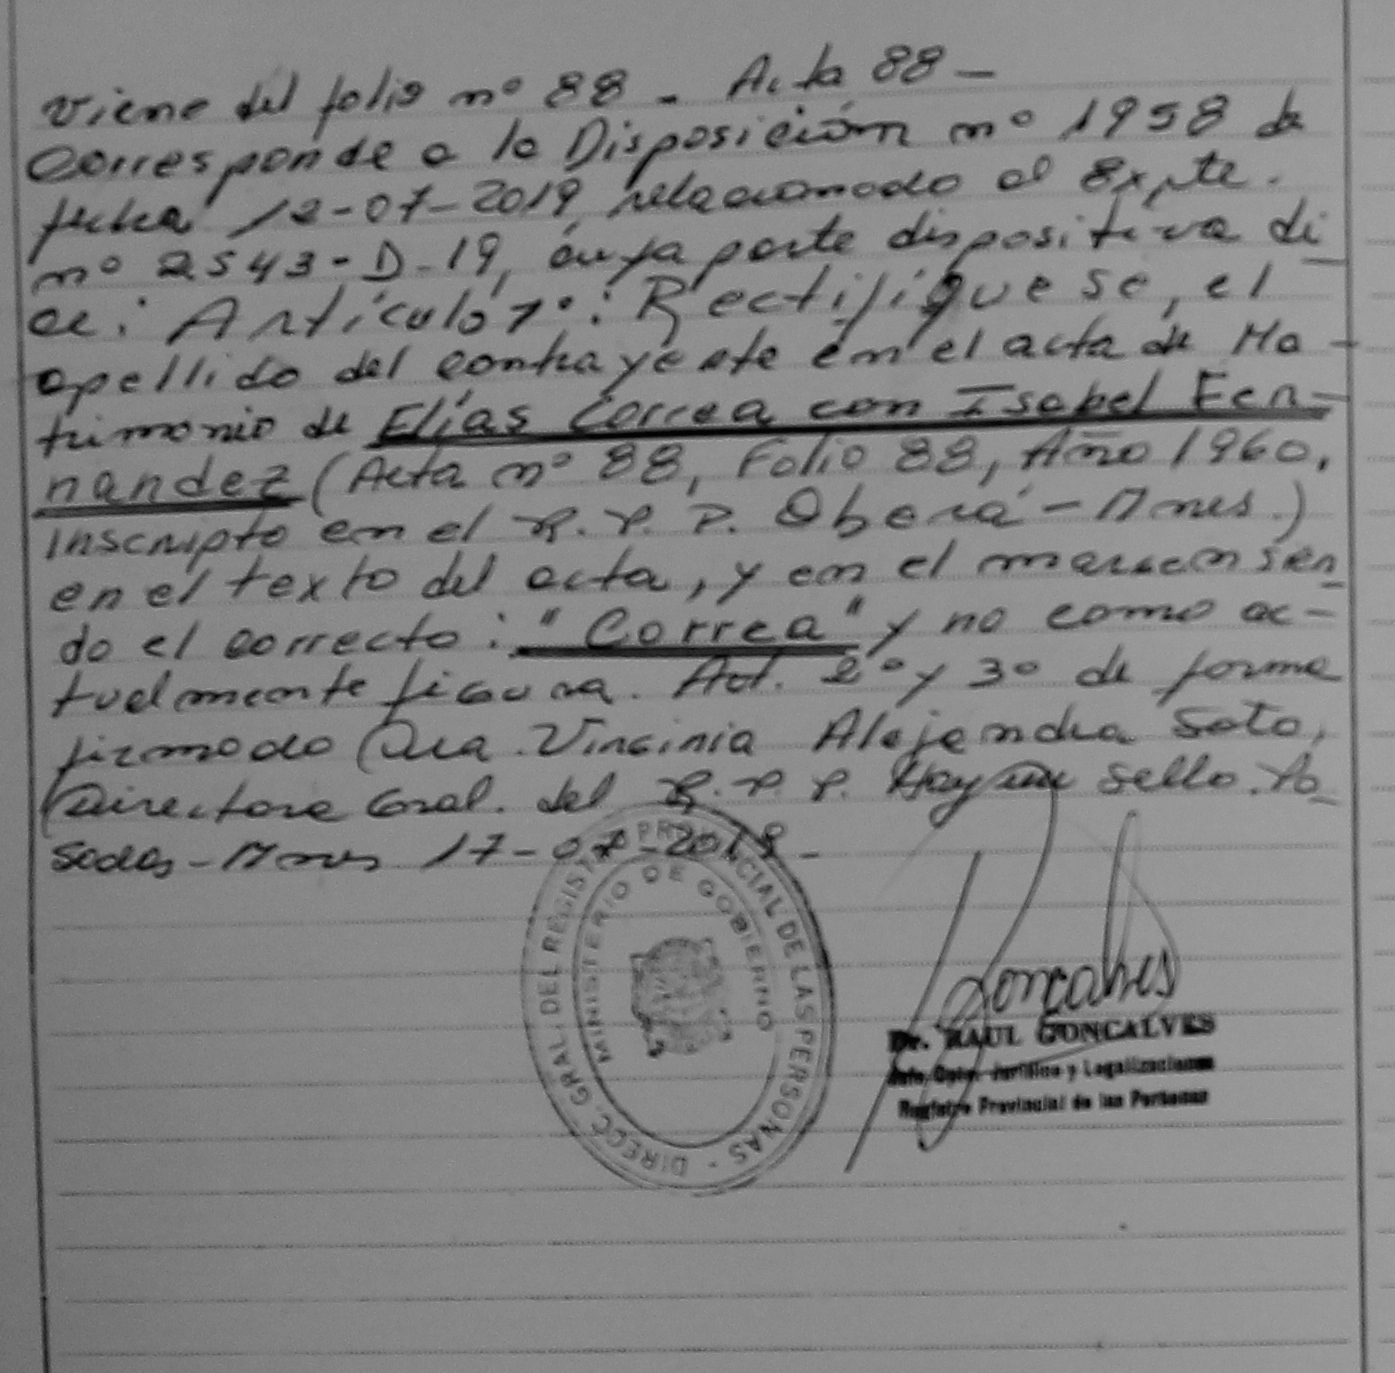 Viene del folio nº 88 - Acta 88 -
Corresponde a la Disposición nº 1958 de
fecha 12-07-2019, relacionado al Expte.
nº 2543-D-19, cuya parte dispositiva di
ce: Artículo 1º: Rectifíquese, el
apellido del contrayente en el acta de Ma-
trimonio de Elías Correa con Isabel Fer-
nandez (Acta nº 88, Folio 88, Año 1960,
inscripto en el R. P. P. Oberá - Mnes.)
en el texto del acta, y en el margen sien
do el correcto: "Correa" y no como ac-
tualmente figura. Art. 2º y 3º de forma
firmado Dra. Virginia Alejandra Soto,
Directora Gral. del R. P. P. Hay un sello. Po
sadas - Mnes 17-07-2019 -
DIRECC. GRAL. DEL REGISTRO PROVINCIAL DE LAS PERSONAS -
MINISTERIO DE GOBIERNO
Goncalves
Dr. RAUL GONCALVES
Jefe Dpto. Jurídico y Legalizaciones
Registro Provincial de las Personas